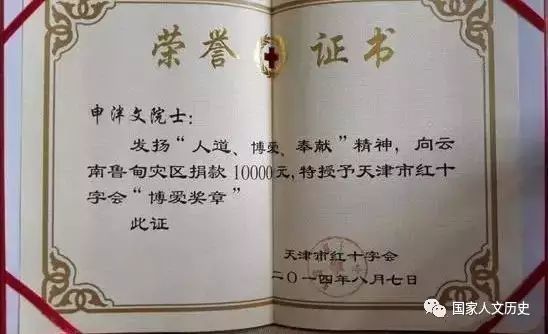 荣誉证书
申泮文院士:
发扬“人道、博爱、奉献”精神,向云
南鲁甸灾区捐款10000元,特授予天津市红十
字会“博爱奖章”
此证
天津市红十字会
二〇一四年八月七日
国家人文历史